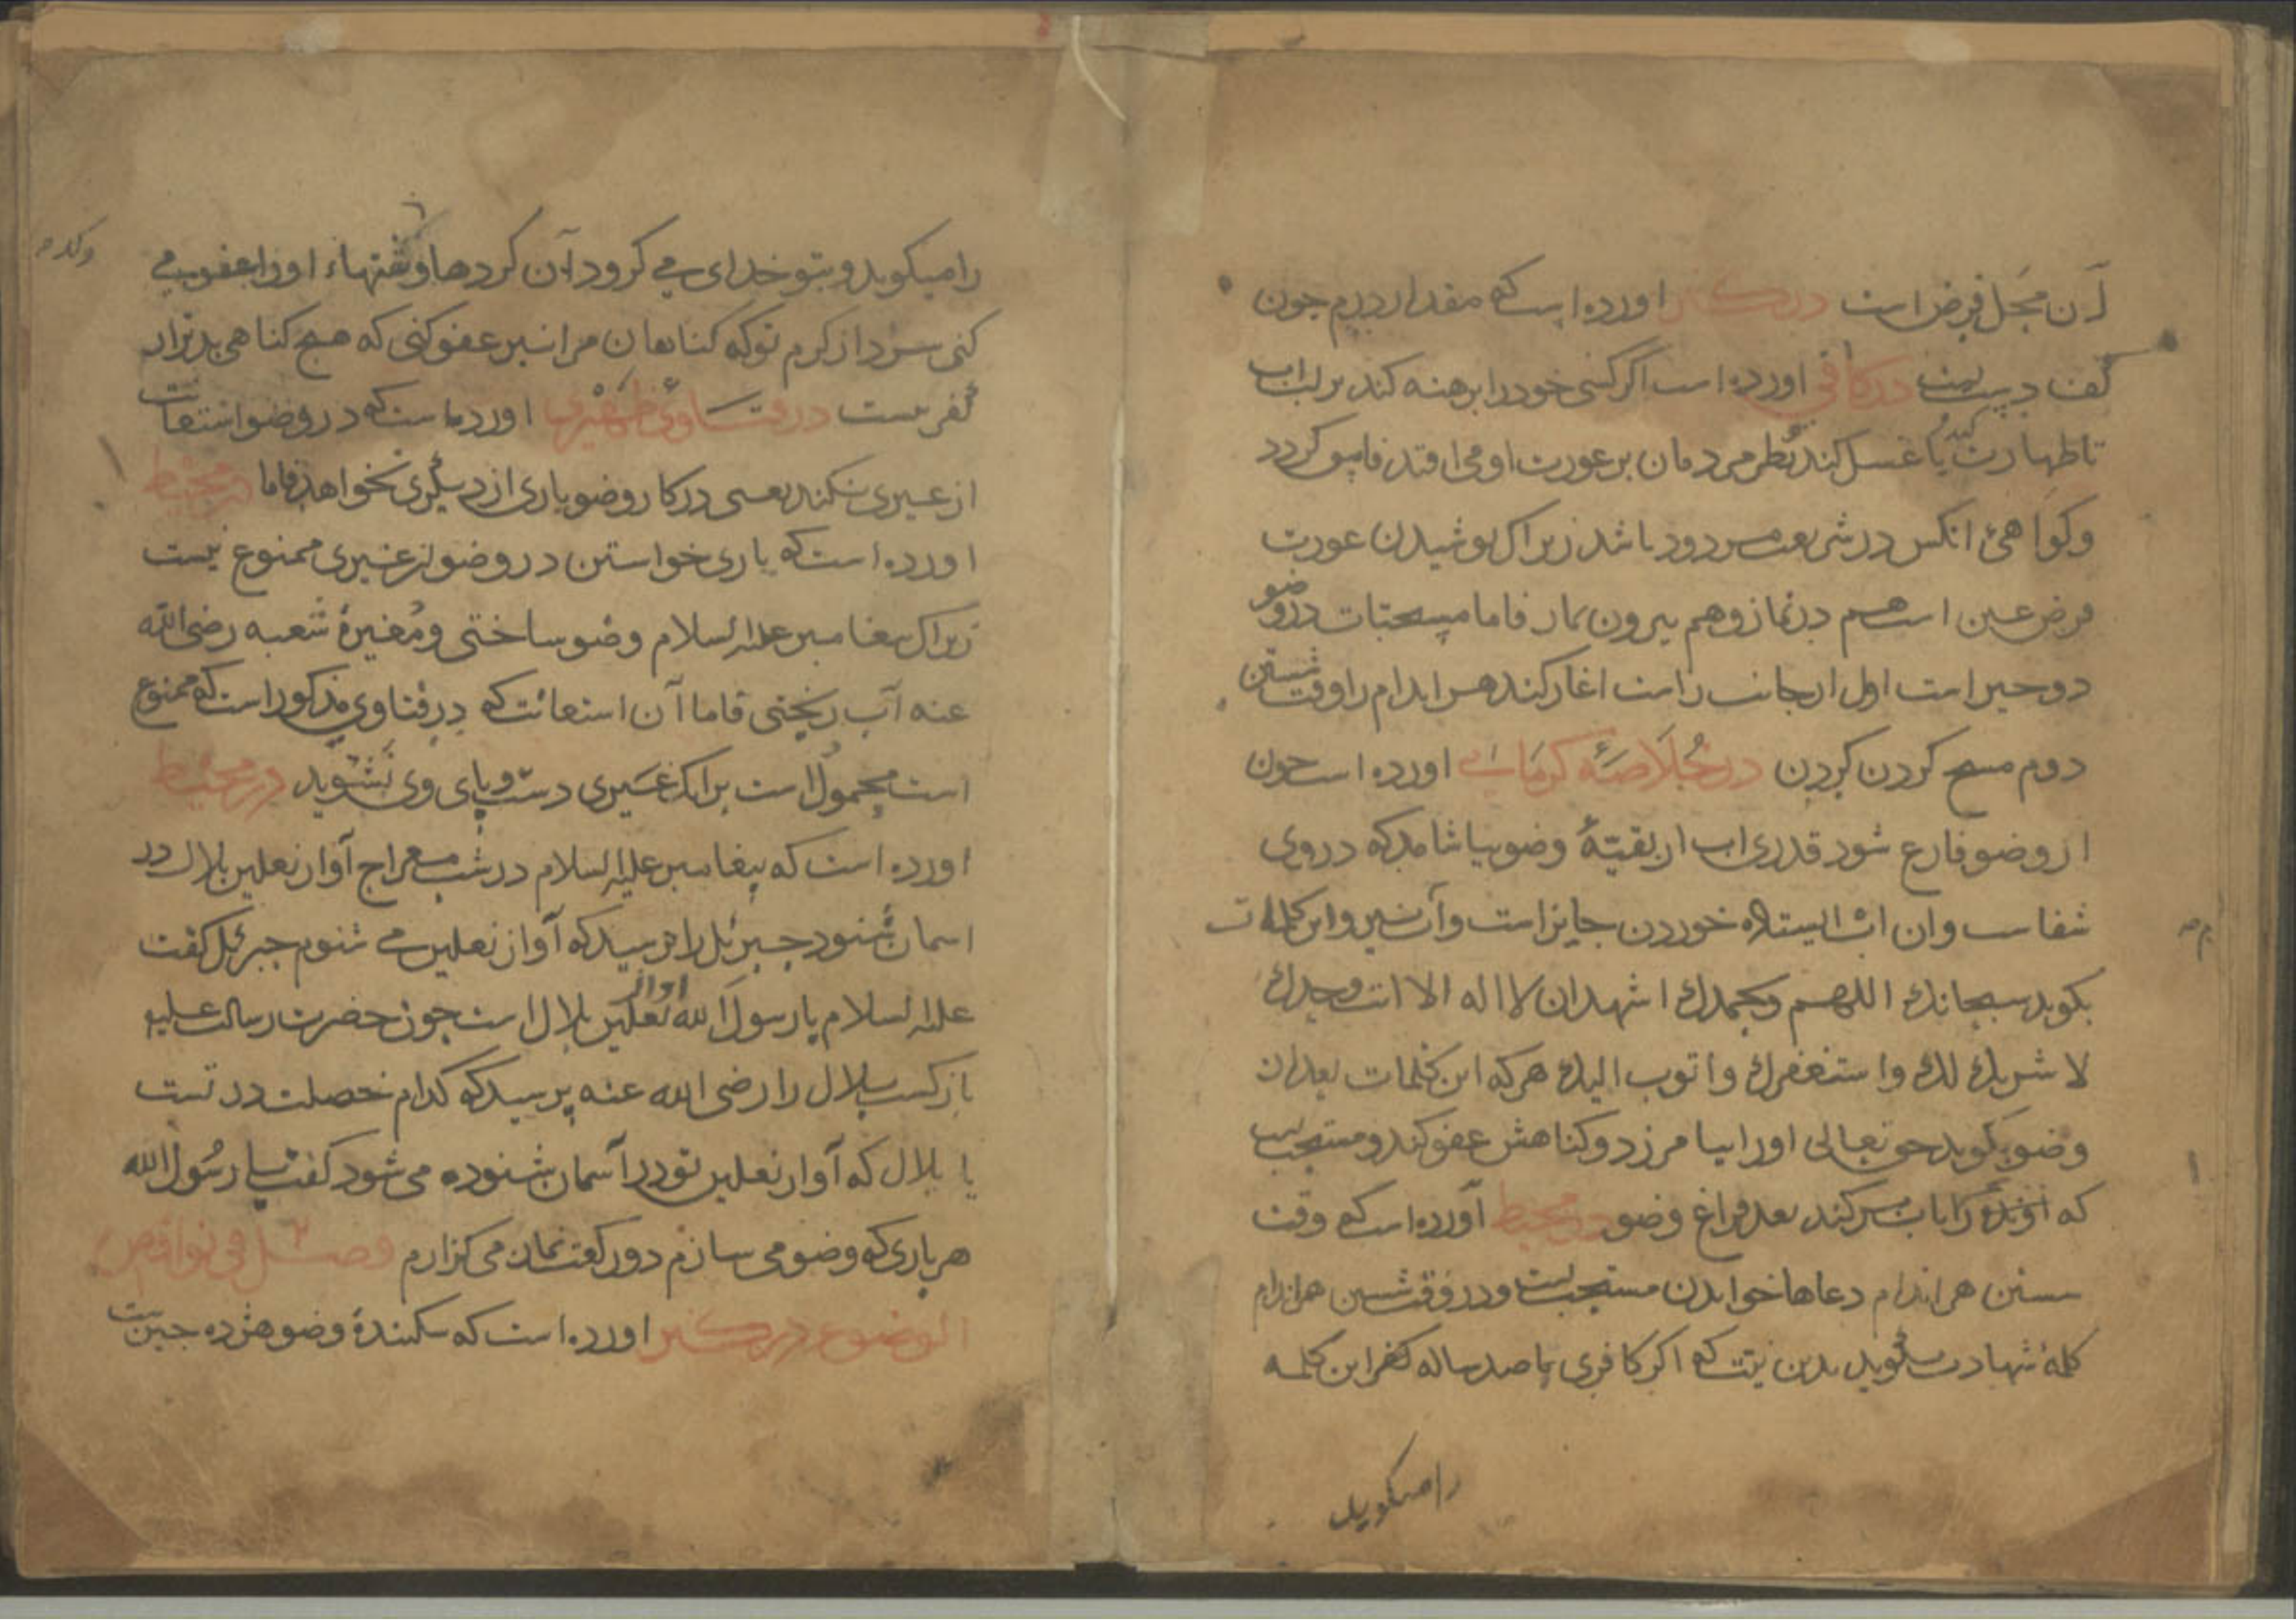 آن محل فرض است در کنز اورده است که مقدار درم چون
کف دست در کافی اورده است اگر کسی خود را برهنه کند بر لب اب
تا طهارت یا غسل کند نظر مردمان بر عورت او می افتد فاسق کردد
و کواهئ انکس در شریعت مردود باشد زیراک پوشیدن عورت
فرض عین است هم در نماز و هم بیرون نماز فاما مستحبات در وضو
دو چیز است اول از جانب راست اغاز کند هر اندام را وقت شستن
دوم مسح کردن کردن در خلاصهٔ کرمانی اورده است چون
از وضو فارغ شود قدری اب از بقیّهٔ وضو بیاشامد که در وی
شفاست و ان اب ایستاده خوردن جایز است و این کلمات
بکوید سبحانك اللهم وبحمدك اشهد ان لا اله الا انت وحدك
لا شریك لك و استغفرك و اتوب الیك هر که این کلمات بعد از
وضو بکوید حق تعالی او را بیامرزد و کناهش عفو کند و مستحب است
که را باب پر کند بعد فراغ وضو در محیط آورده است که وقت
شستن هر اندام دعاها خواندن مستحب است و در وقت شستن هر اندام
کلمهٔ شهادت بکوید بدین نیت که اکر کافری با صد ساله کفر این کلمه
را میکوید
را میکوید و بتو خدای می کرود آن کردها و کفتهاء او را عفو می
کنی سزد از کرم تو که کناهان مرا نیز عفو کنی که هیچ کناهی بدتر از
کفر نیست در فتاوی ظهیری اورده است که در وضو استعانت
از غیری نکند یعنی در کار وضو یاری از دیکری نخواهد فاما در محیط
اورده است که یاری خواستن در وضو از غیری ممنوع نیست
زیراک پیغامبر علیه السلام وضو ساختی و مُغیرهٔ شعبه رضی الله
عنه آب ریختی فاما آن استعانت که در فتاوی مذکور است که ممنوع
است محمول است برانک غیری دست و پای وی بشوید در محیط
اورده است که پیغامبر علیه السلام در شب معراج آواز نعلین بلال در
اسمان شنود جبرئل را پرسید که آواز نعلین می شنوم جبرئل کفت
علیه السلام یا رسول الله اواز نعلین بلال است چون حضرت رسالت علیه
باز کشت بلال را رضی الله عنه پرسید که کدام خصلت در تست
یا بلال که آواز نعلین تو در آسمان شنوده می شود کفت یا رسُول الله
هر باری که وضو می سازم دو رکعت نماز می کزارم فصل فی نواقض
الوضوء در کنز اورده است که شکنندهٔ وضو هژده چیز است